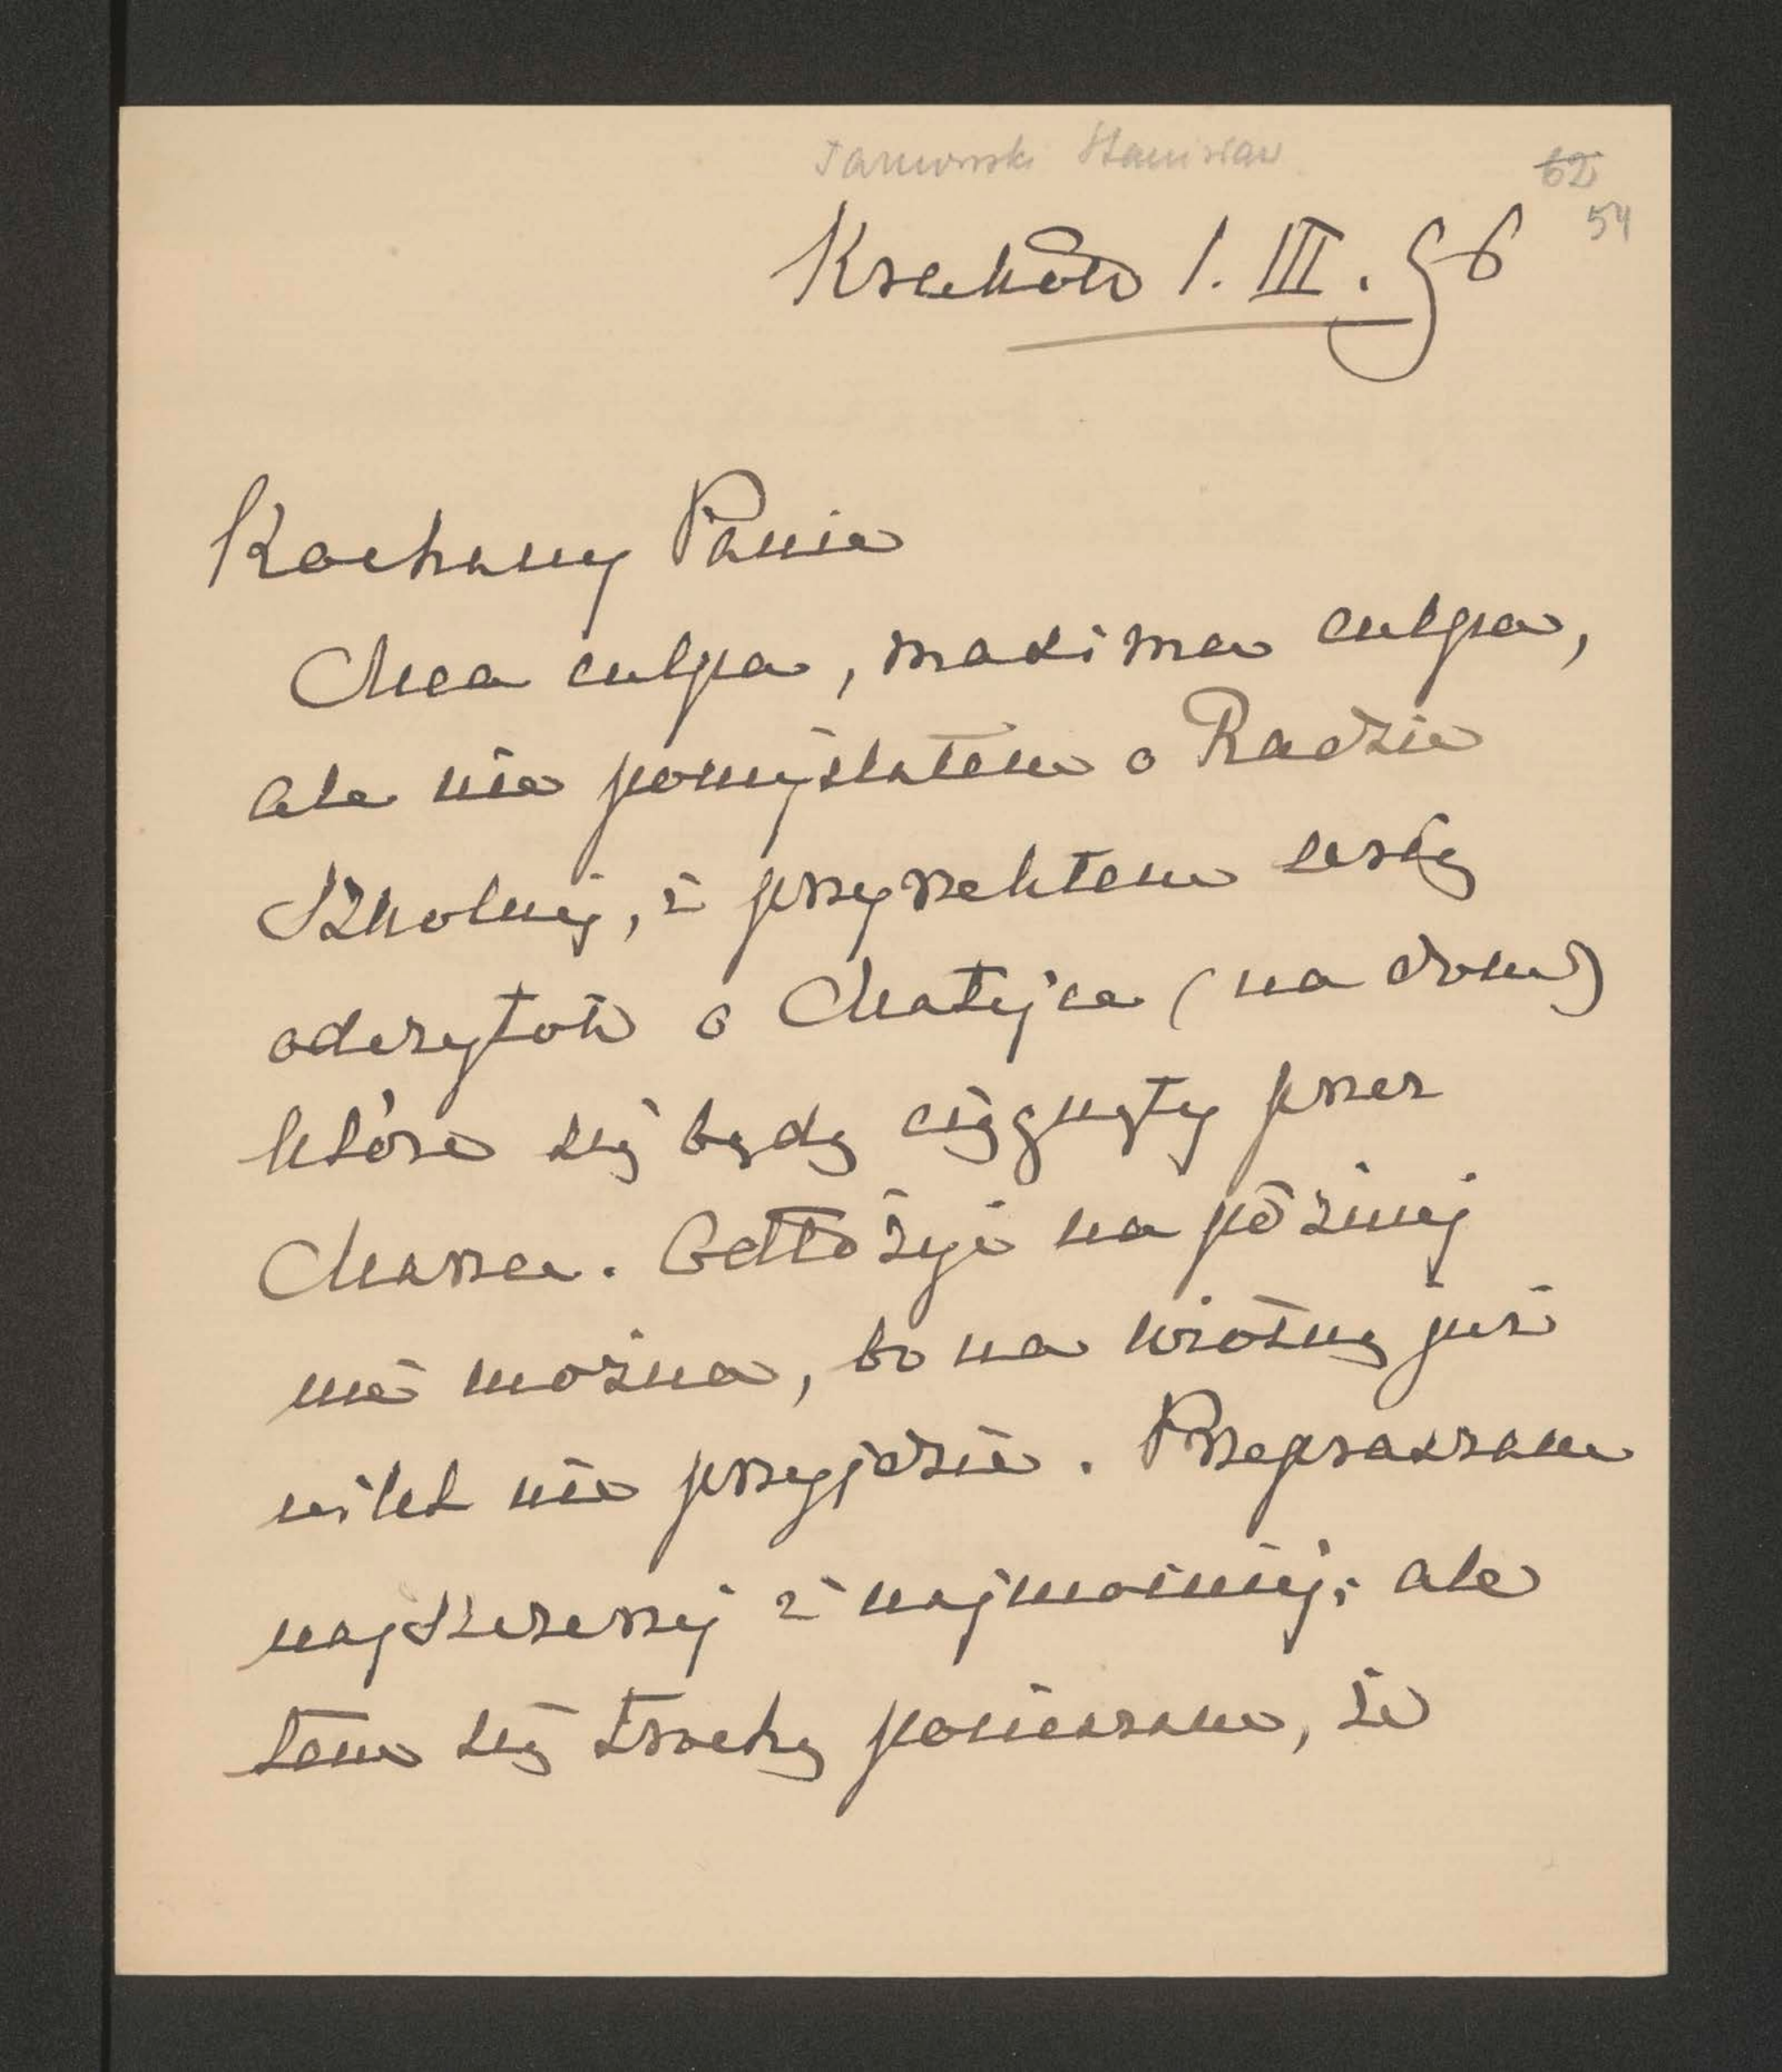 Tarnowski Stanisław
62
54
Kraków 1. III. 96
Kochany Panie
Mea culpa, maxima culpa,
ale nie pomyślałem o Radzie
Szkolnej, i przyrzekłem serię
odczytów o Matejce (na dom)
które się będą ciągnęły przez
Marzec. Odłożyć na później
nie można, bo na wiosnę już
nikt nie przyjdzie. Przepraszam
najszczerzej i najmocniej; ale
tem się trochę pocieszam, że